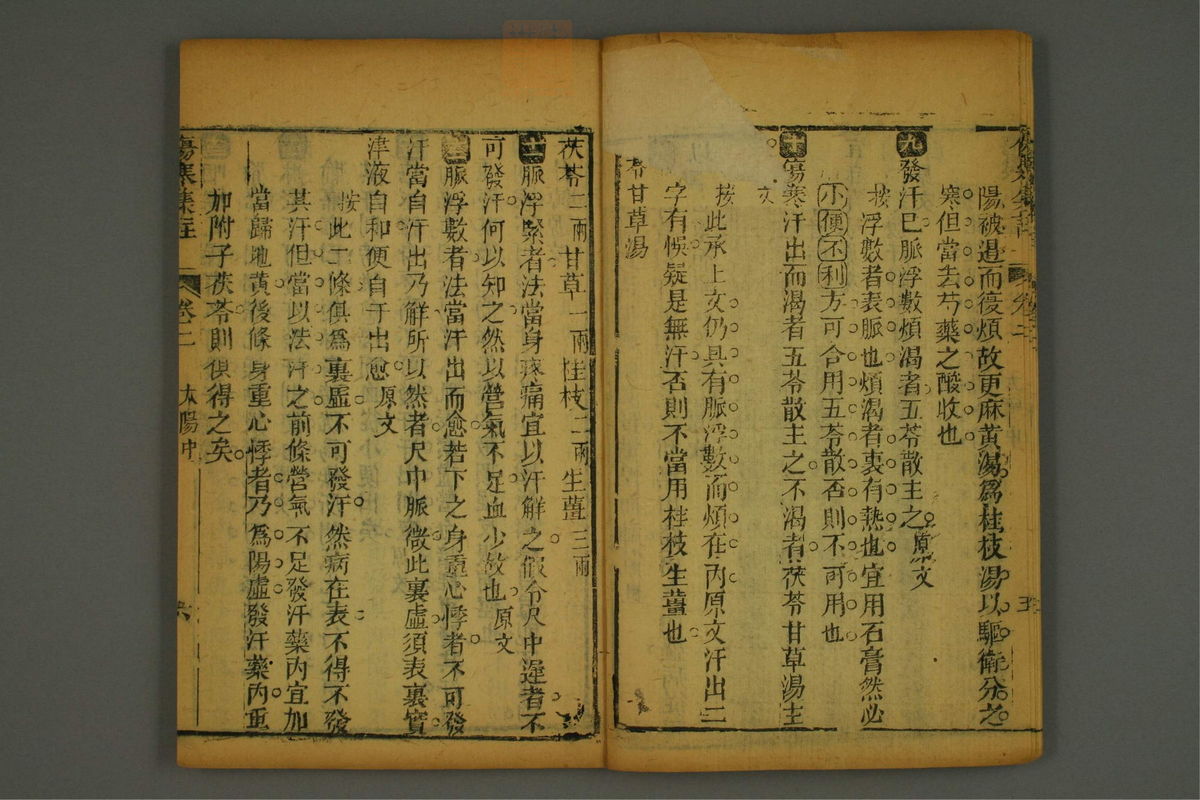 陽被遏而復煩故更麻黃湯爲桂枝湯以驅衛分之
寒但當去芍藥之酸收也
九發汗已脈浮數煩渴者五苓散主之原文
按浮數者表脈也煩渴者裏有熱也宜用石膏然必
小便不利方可合用五苓散否則不可用也
十傷寒汗出而渴者五苓散主之不渴者茯苓甘草湯主
文
按此承上文仍具有脈浮數而煩在內原文汗出二
字有悞疑是無汗否則不當用桂枝生薑也
苓甘草湯
茯苓二兩甘草一兩桂枝二兩生薑三兩
脈浮緊者法當身疼痛宜以汗解之假令尺中遲者不
可發汗何以知之然以營氣不足血少故也原文
脈浮數者法當汗出而愈若下之身重心悸者不可發
汗當自汗出乃解所以然者尺中脈微此裏虛須表裏實
津液自和便自汗出愈原文
按此二條俱爲裏虛不可發汗然病在表不得不發
其汗但當以法汗之前條營氣不足發汗藥內宜加
當歸地黃後條身重心悸者乃爲陽虛發汗藥內重
加附子茯苓則俱得之矣
傷寒集註
卷二
太陽中
六